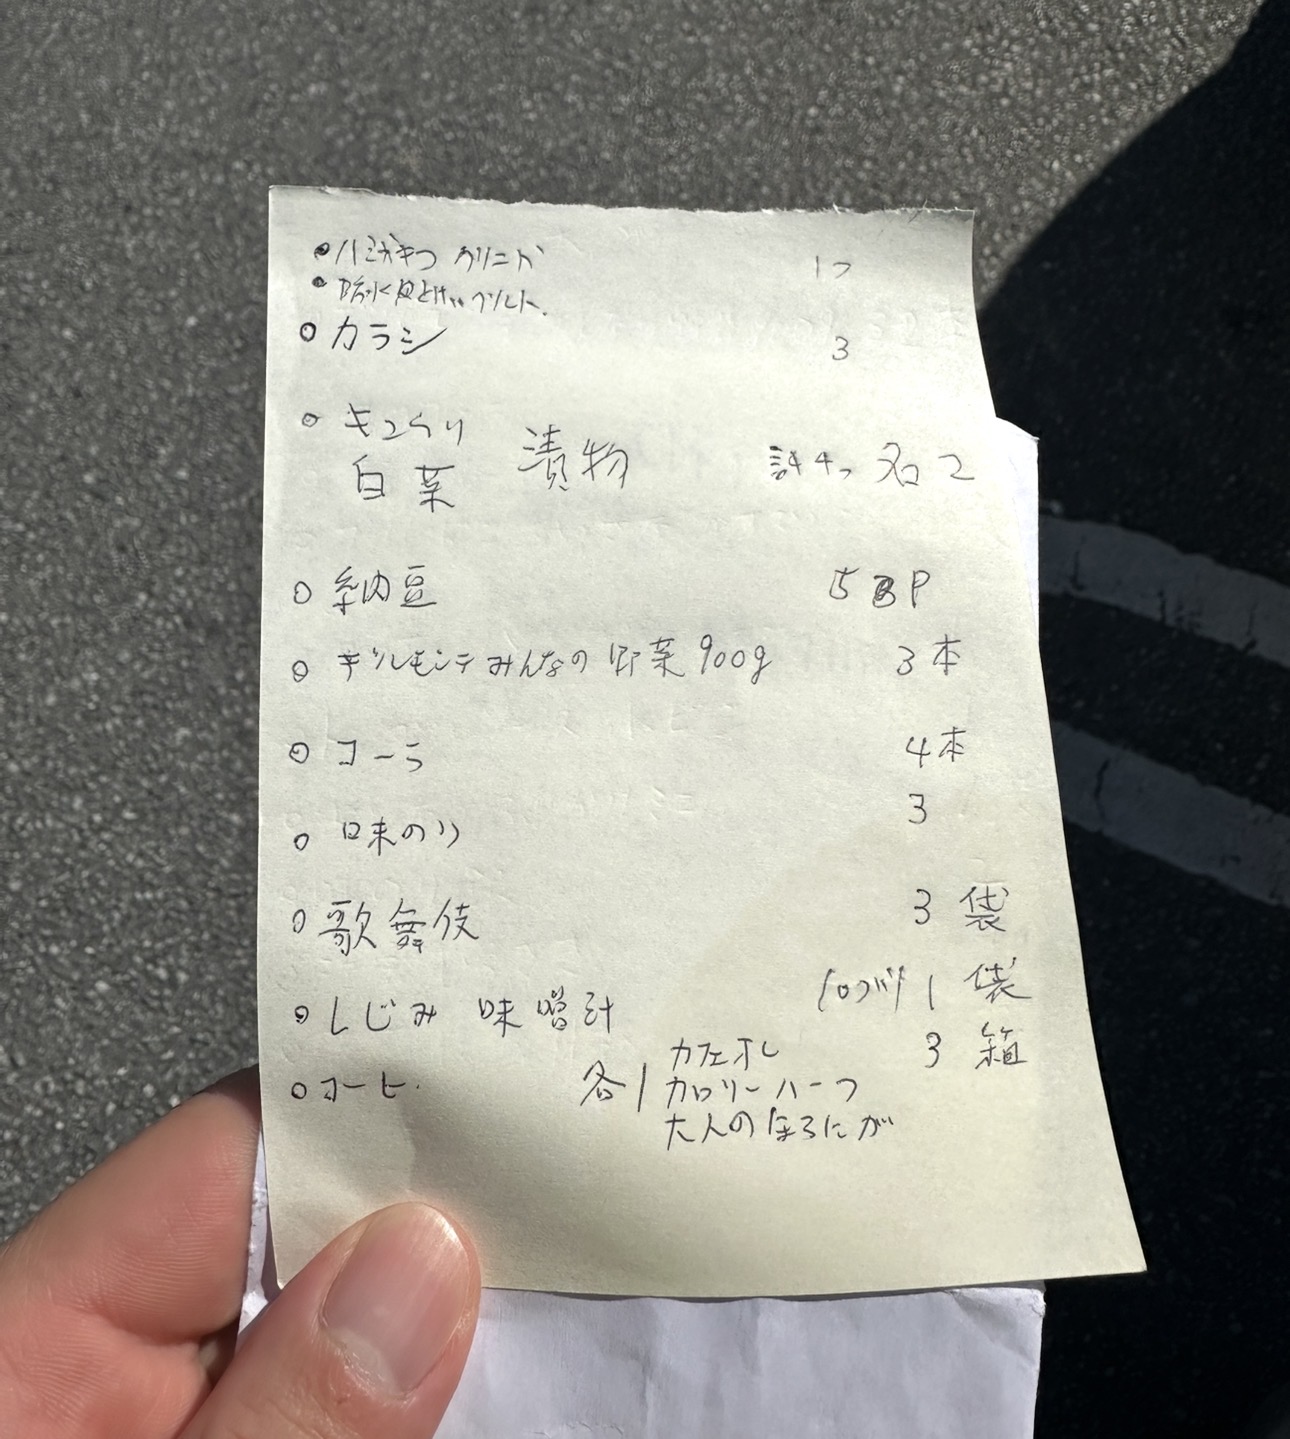 ハミガキコ クリニカ 1つ
防水
カラシ 3
キュウリ
白菜 漬物 計4つ 各2
納豆 5 P
デルモンテ みんなの野菜 900g 3本
コーラ 4本
味のり 3
歌舞伎 3袋
しじみ 味噌汁 1袋
コーヒー 各1 カフェオレ 3箱
カロリーハーフ
大人のほろにが